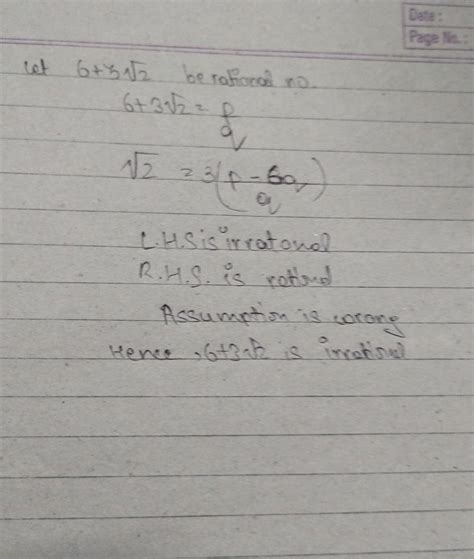 Date :
Page No. :
Let 6+3√2 be rational no.
6+3√2 = p/q
√2 = 3(p-6q/q)
L.H.S is irratonal
R.H.S. is rational
Assumption is wrong
Hence, 6+3√2 is irrational